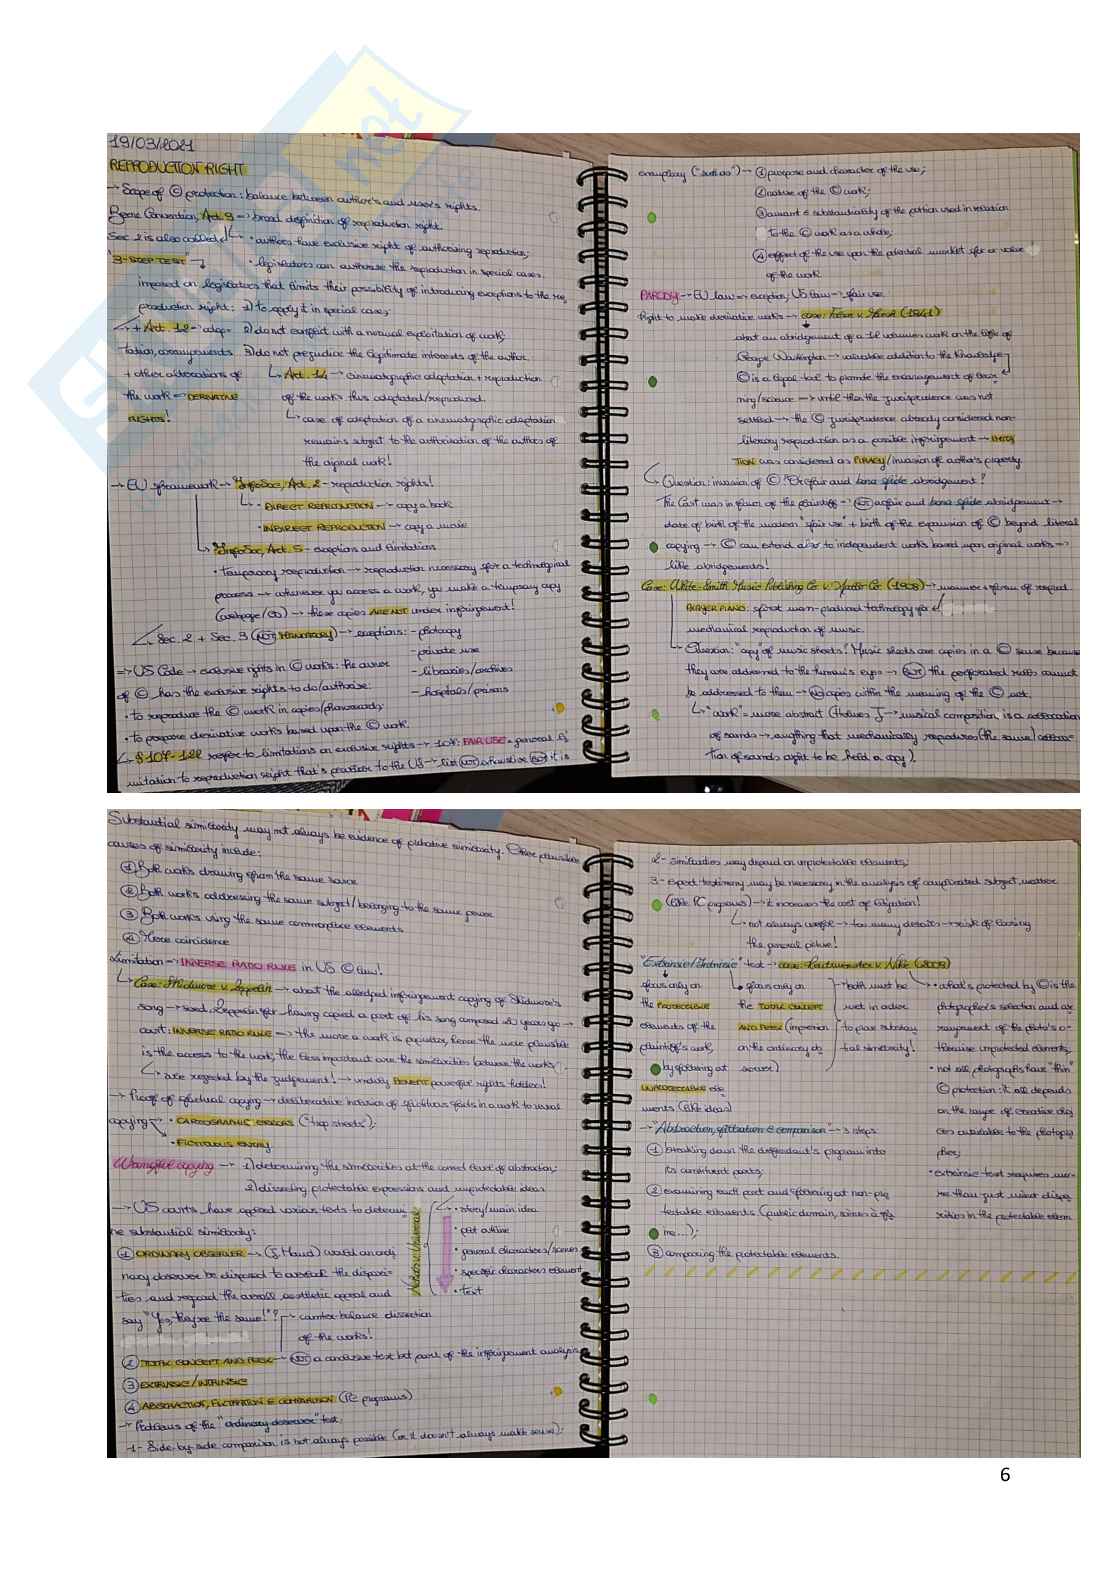 19/03/2021
REPRODUCTION RIGHT
→ Scope of © protection: balance between author's and user's rights.
Berne Convention, Art. 9 → broad definition of reproduction right
Sec. 2 is also called • authors have exclusive right of authorising reproduction;
"3-STEP TEST" • legislators can authorise the reproduction in special cases.
imposed on legislators that limits their possibility of introducing exceptions to the re
production right: 1) to apply it in special cases;
+ Art. 12 → adap- 2) do not conflict with a normal exploitation of work;
tation, arrangements 3) do not prejudice the legitimate interests of the author.
+ other alterations of Art. 14 → cinematographic adaptation + reproduction
the work → DERIVATIVE of the works thus adapted/reproduced.
RIGHTS! case of adaptation of a cinematographic adaptation
remains subject to the authorisation of the authors of
the original work!
→ EU framework → InfoSoc, Art. 2 - reproduction rights!
• DIRECT REPRODUCTION → copy a book
• INDIRECT REPRODUCTION → copy a movie
InfoSoc, Art. 5 - exceptions and limitations
• Temporary reproduction → reproduction necessary for a technological
process → whenever you access a work, you make a temporary copy
(webpage/CD) → these copies ARE NOT under infringement!
Sec. 2 + Sec. 3 (NOT MANDATORY) → exceptions: - photocopy
- private use
⇒ US Code → exclusive rights in © works: the owner - libraries/archives
of © has the exclusive rights to do/authorize: - hospitals/prisons
• to reproduce the © work in copies/phonorecords;
• to prepare derivative works based upon the © work.
§ 107-122 refer to limitations on exclusive rights → 107: FAIR USE = general li
mitation to reproduction right that's peculiar to the US → list NOT exhaustive BUT it is
exemplary ("such as") → ① purpose and character of the use;
② nature of the © work;
③ amount & substantiality of the portion used in relation
to the © work as a whole;
④ effect of the use upon the potential market for a value
of the work
PARODY → EU law → exception; US law → fair use
Right to make derivative works → case: Folsom v. Marsh (1841)
about an abridgement of a 12 volumes work on the life of
George Washington → valuable addition to the knowledge
© is a legal tool to promote the encouragement of lear
ning/science → until then the jurisprudence was not
settled → the © jurisprudence already considered non-
literary reproduction as a possible infringement →
TION was considered as PIRACY/invasion of author's property.
Question: invasion of © or fair and bona fide abridgement?
The Court was in favor of the plaintiff → NOT a fair and bona fide abridgement →
date of birth of the modern "fair use" + birth of the expansion of © beyond literal
copying → © can extend also to independent works based upon original works →
like abridgements!
Case: White-Smith Music Publishing Co v. Apollo Co (1908) →
PLAYER PIANO: first man-produced technology for
mechanical reproduction of music.
Question: "copy" of music sheets? Music sheets are copies in a © sense because
they are addressed to the human's eyes → BUT the perforated rolls cannot
be addressed to them → NO copies within the meaning of the © act.
"work" = more abstract (Holmes J → musical composition is a collocation
of sounds → anything that mechanically reproduces (the same) colloca-
tion of sounds ought to be held a copy).
Substantial similarity may not always be evidence of probative similarity. Other plausible
causes of similarity include:
① Both works drawing from the same source
② Both works addressing the same subject/belonging to the same genre
③ Both works using the same commonplace elements
④ Mere coincidence
Limitation → INVERSE RATIO RULE in US © law!
Case: Skidmore v. Zeppelin → about the alledged infringement copying of Skidmore's
song → sued Zeppelin for having copied a part of his song composed years ago →
court: INVERSE RATIO RULE → the more a work is popular, hence the more plausible
is the access to the work, the less important are the similarities between the works
are rejected by the judgement! → unduly BENEFIT powerful rights holders!
→ Proof of factual copying → deliberative inclusion of fictitious facts in a work to reveal
copying • CARTOGRAPHIC ERRORS ("trap streets");
• FICTITIOUS ENTRY
Wrongful copying → 1) determining the similarities at the correct level of abstraction;
2) dissecting protectable expressions and unprotectable ideas
→ US courts have applied various tests to determi • story/main idea
ne substantial similarity: • plot outline
① ORDINARY OBSERVER → (J. Hand) would an ordi • general characters/scenes
nary observer be disposed to overlook the dispari- • specific characters element
ties and regard the overall aesthetic appeal and • text
say "Yes, they're the same!"? counter-balance dissection
of the works!
② TOTAL CONCEPT AND FEEL → NOT a conclusive test but part of the infringement analysis
③ EXTRINSIC/INTRINSIC
④ ABSTRACTION, FILTRATION & COMPARISON (PC programs)
→ Problems of the "ordinary observer" test:
1- Side-by-side comparison is not always possible (or it doesn't always make sense);
2- similarities may depend on unprotectable elements;
3- expert testimony may be necessary in the analysis of complicated subject matter
(like PC programs) → it increases the cost of litigation!
not always useful → too many details → risk of loosing
the general picture!
"Extrinsic/Intrinsic" test → case: Rentmeester v. Nike (2008)
focus only on focus only on both must be • what's protected by © is the
the PROTECTABLE the TOTAL CONCEPT met in order photographer's selection and ar
elements of the AND FEEL (impression to prove substan rangement of the photo's o-
plaintiff's work, on the ordinary ob tial similarity! therwise unprotected elements;
by filtering at server) • not all photographs have "thin"
UNPROTECTABLE ele © protection: it all depends
ments (like ideas) on the range of creative cho
→ "Abstraction, filtration & comparison" → 3 steps ices available to the photogra
① breaking down the defendant's program into pher;
its constituent parts; • extrinsic test requires mo-
② examining each part and filtering at non-pro re than just minor dispa
tectable elements (public domain, scènes à fai rities in the protectable elem.
re...);
③ comparing the protectable elements.
6